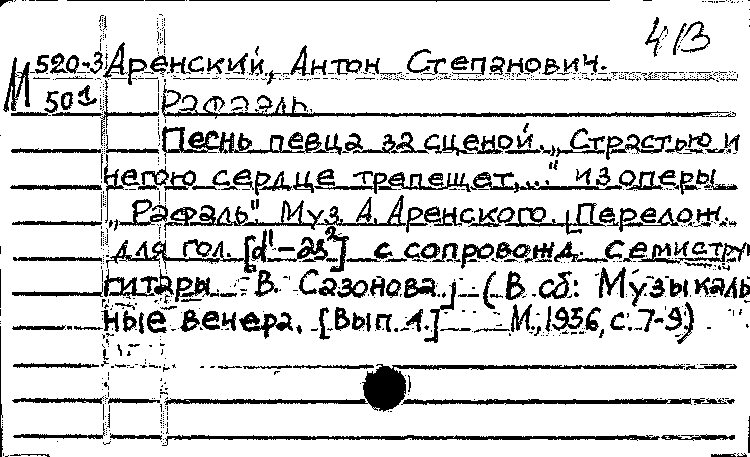 413
М 520-3 Аренский, Антон Степанович.
501 Рафаэль.
Песнь певца за сценой. „Страстью и
негою сердце трепещет,..." из оперы
„Рафаль". Муз. А. Аренского. [Перелож.
для гол. [d'-as²] с сопровожд. семистру
гитары В. Сазонова.] (В сб: Музыкаль
ные вечера. [Вып. 1.] М., 1936, с. 7-9)